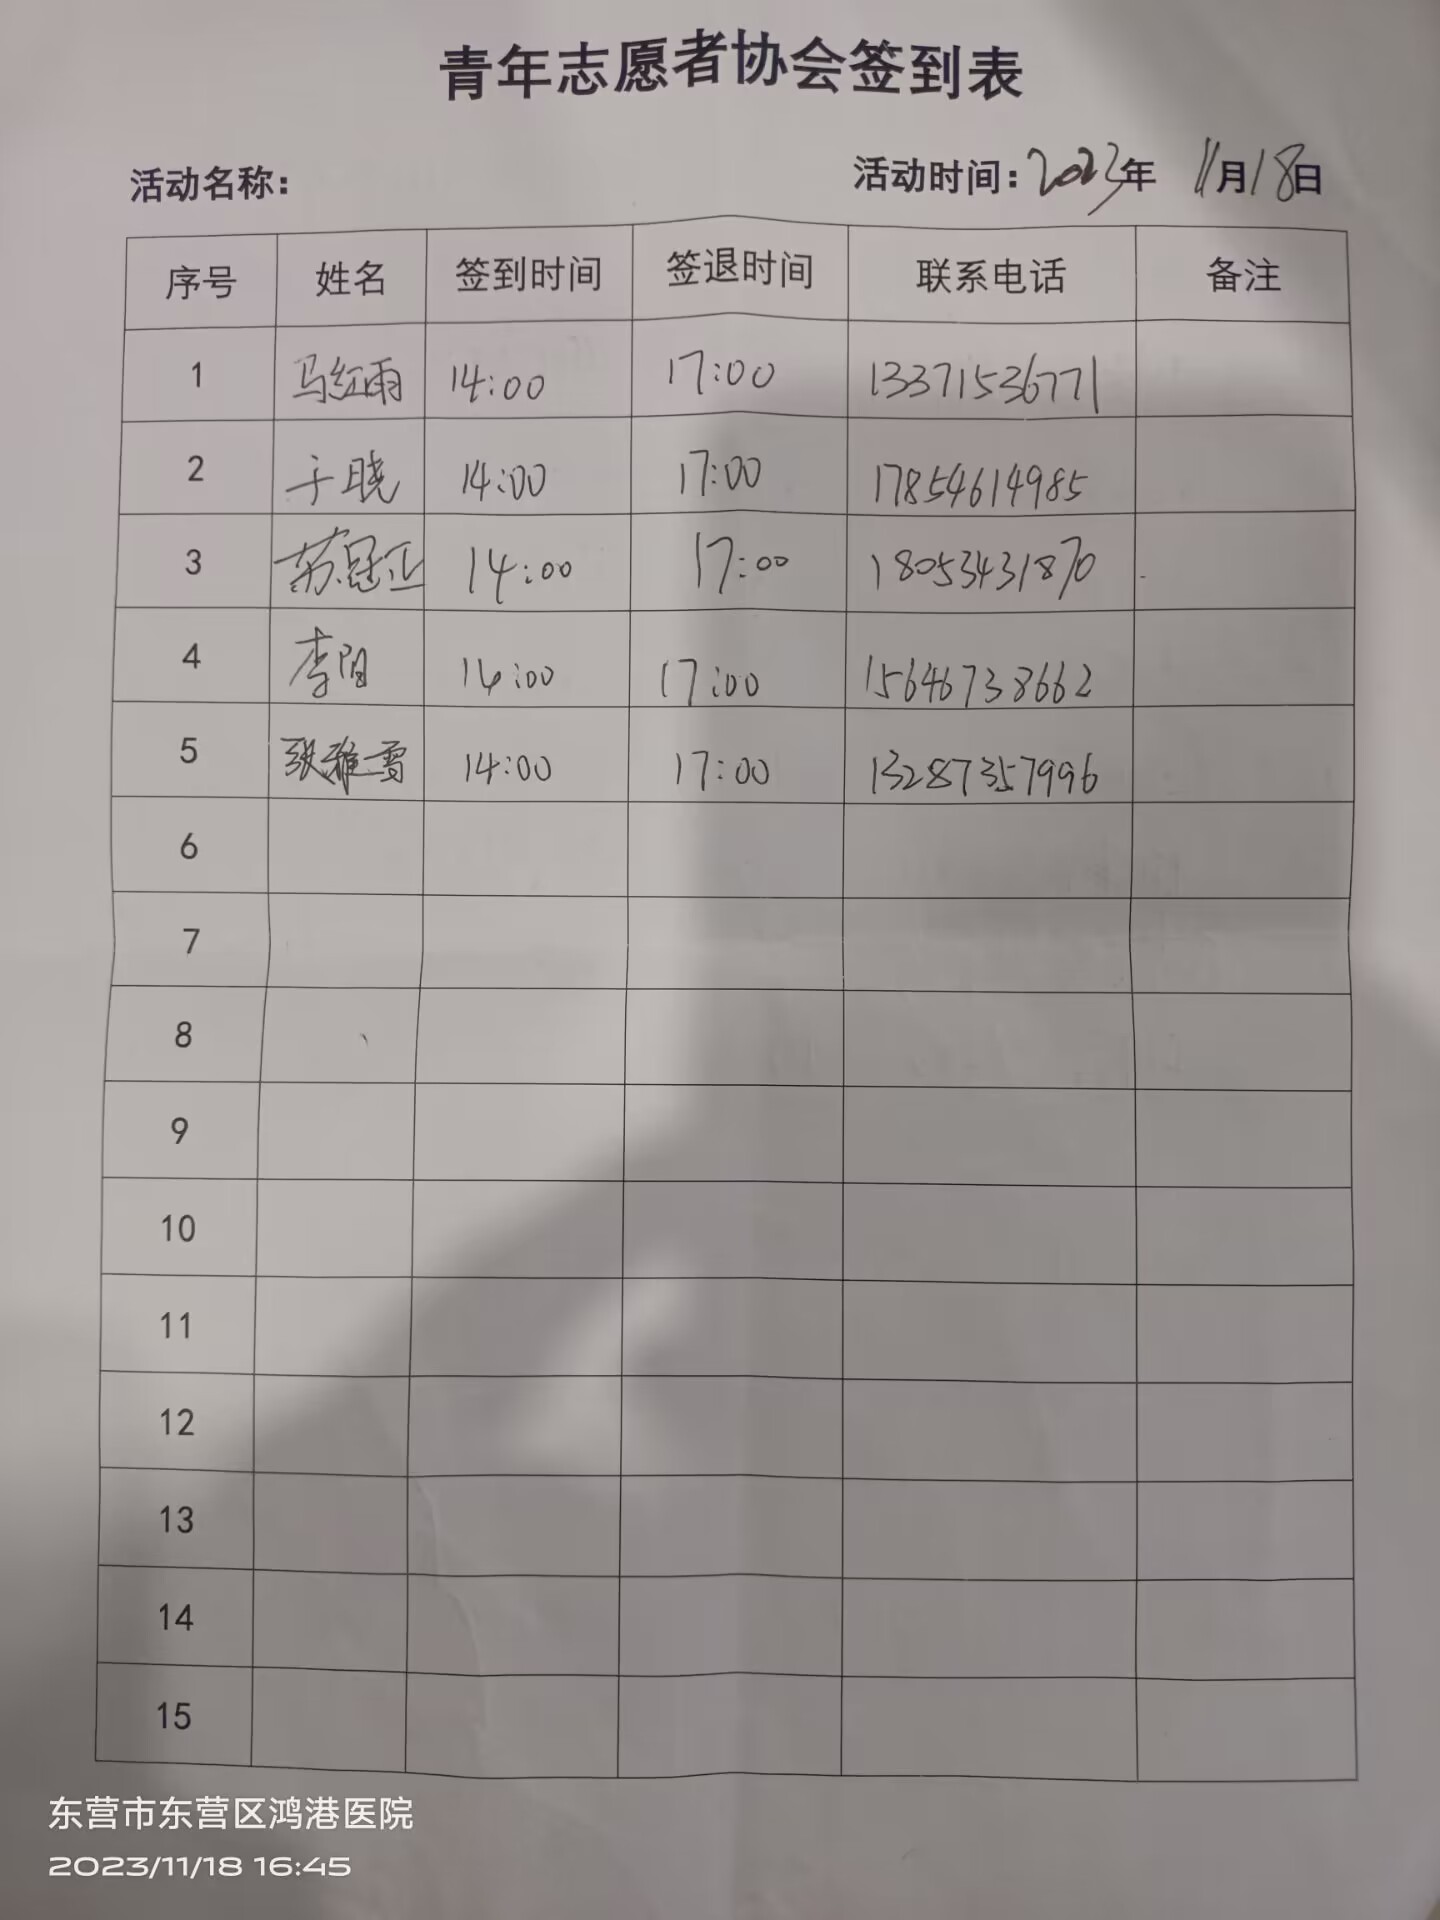 青年志愿者协会签到表
活动名称: 活动时间:2023年 11月18日
序号 姓名 签到时间 签退时间 联系电话 备注
1 马红雨 14:00 17:00 13371536771
2 于晓 14:00 17:00 17854614985
3 苏冠亚 14:00 17:00 18053431870
4 李阳 14:00 17:00 15646738662
5 张雅雪 14:00 17:00 13287357996
6
7
8
9
10
11
12
13
14
15
东营市东营区鸿港医院
2023/11/18 16:45